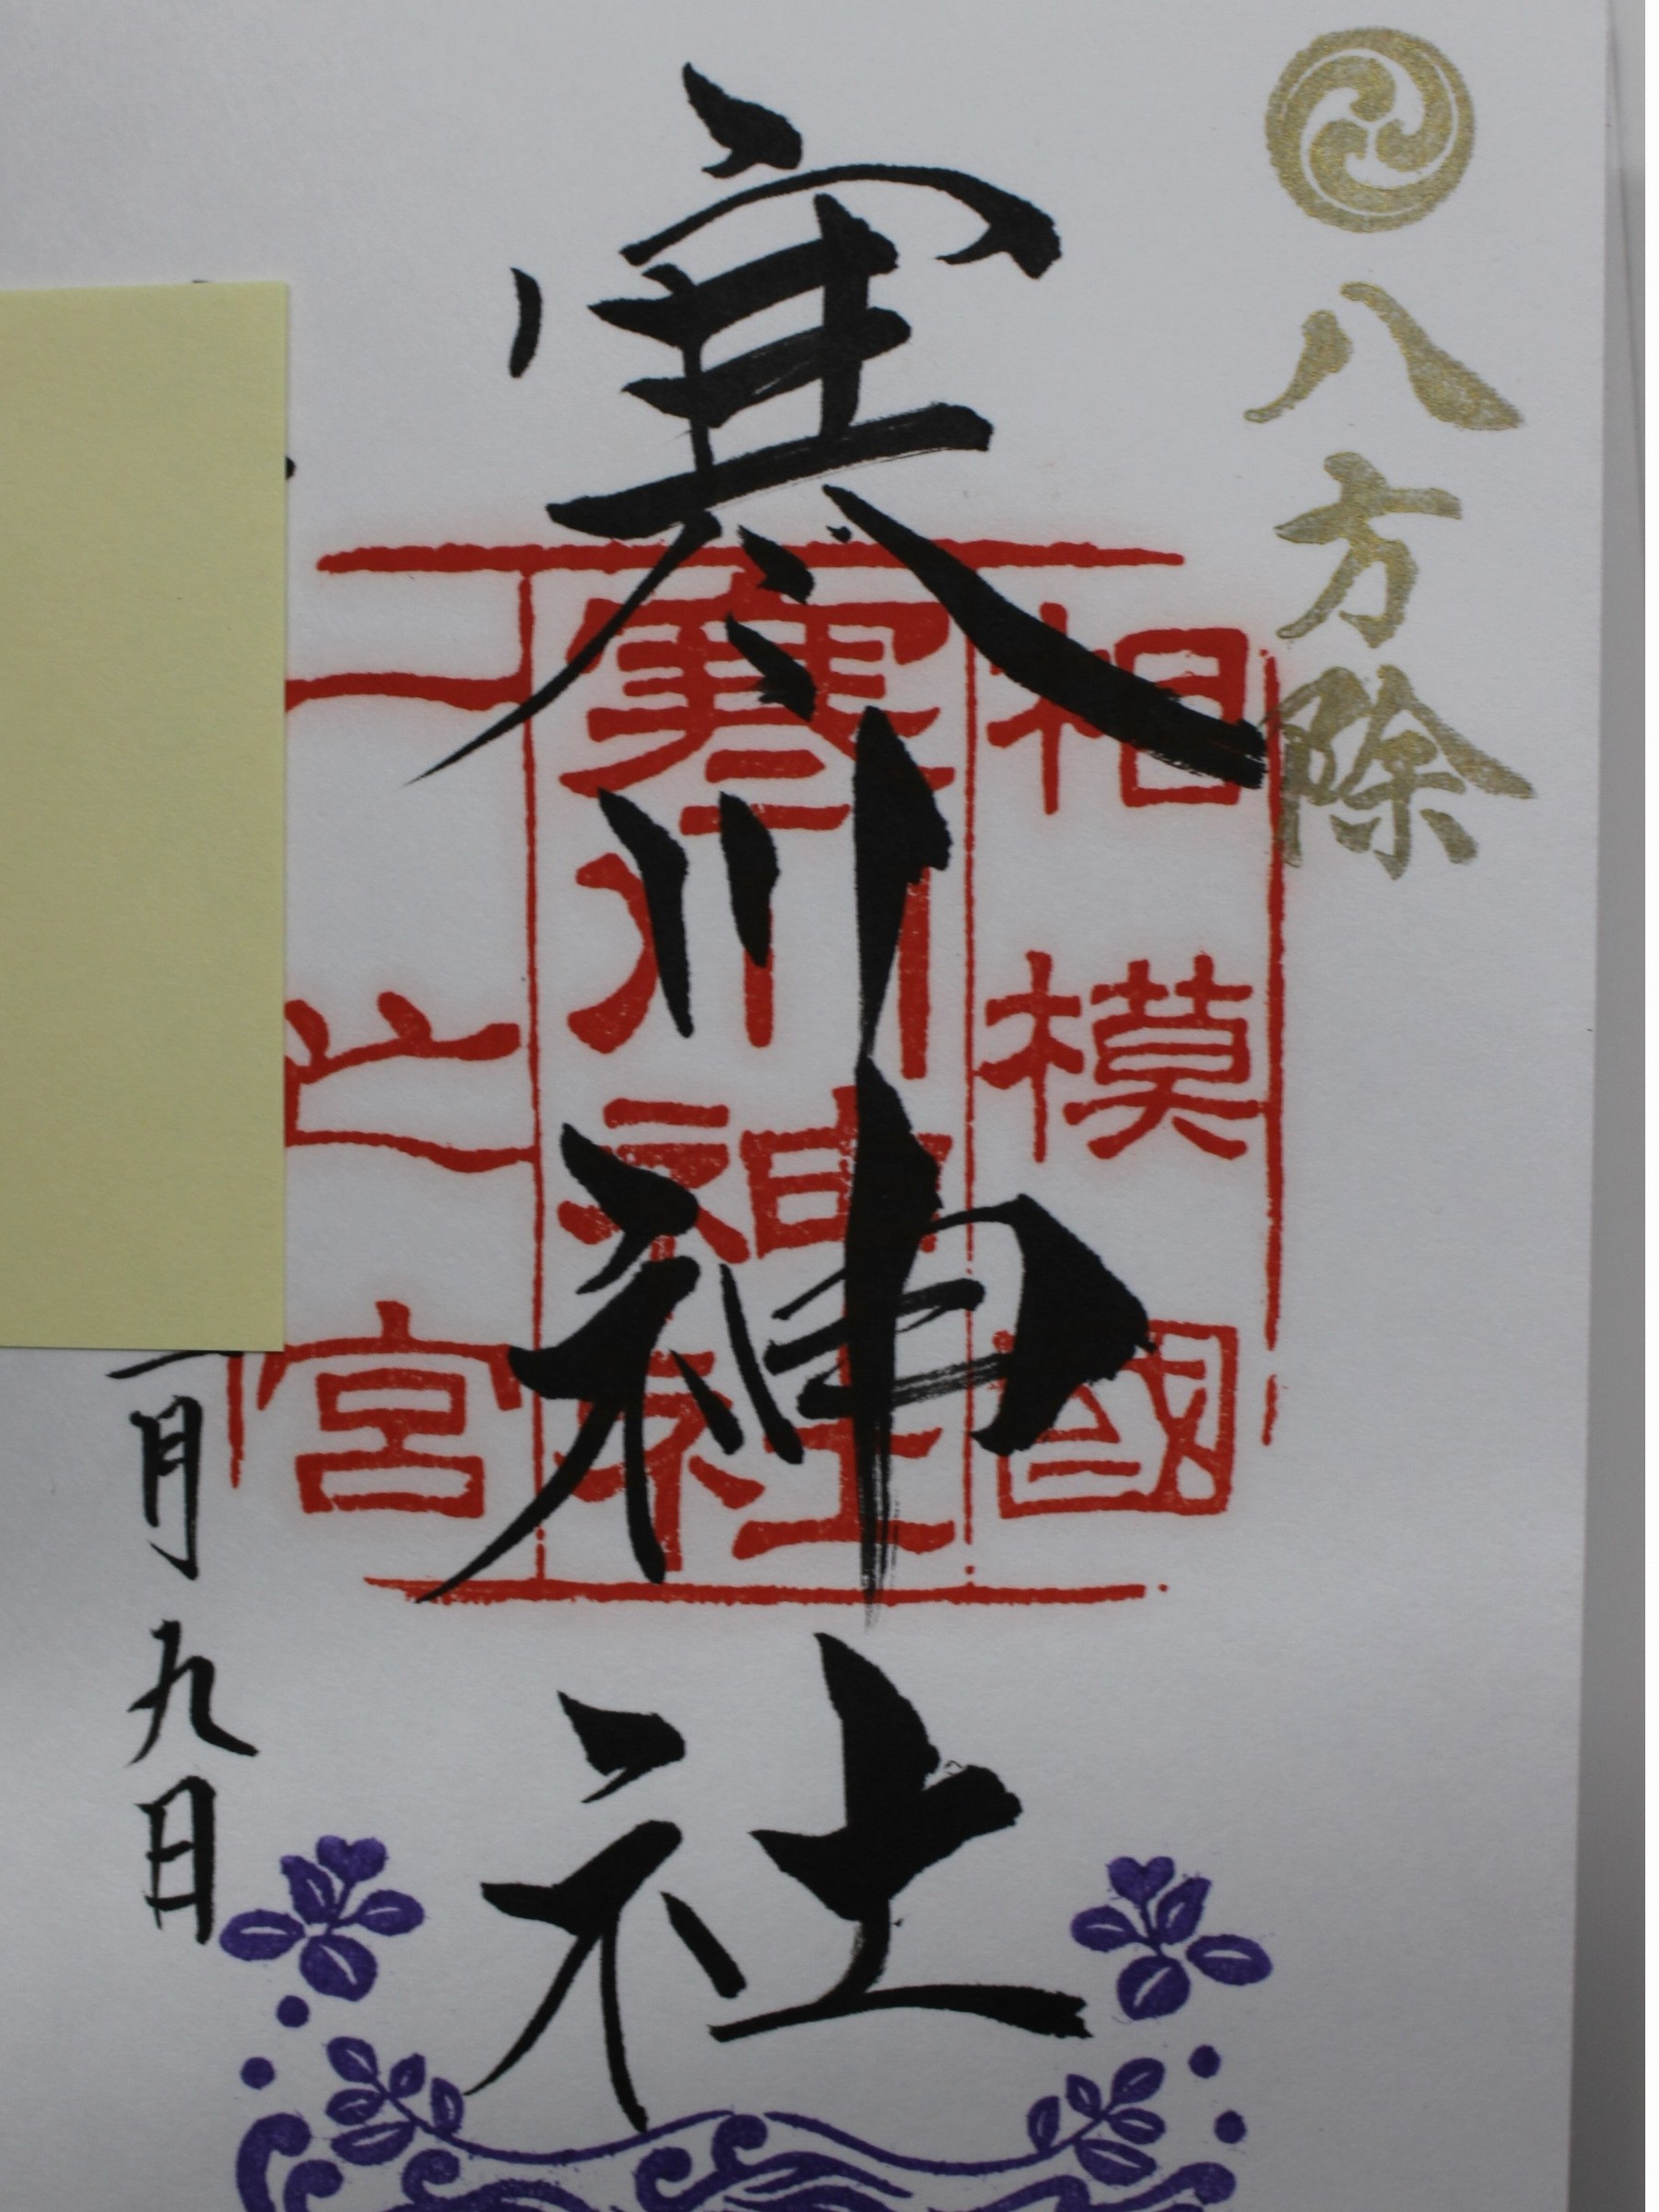 八方除
相模國
寒川神社
宮
寒川神社
月九日